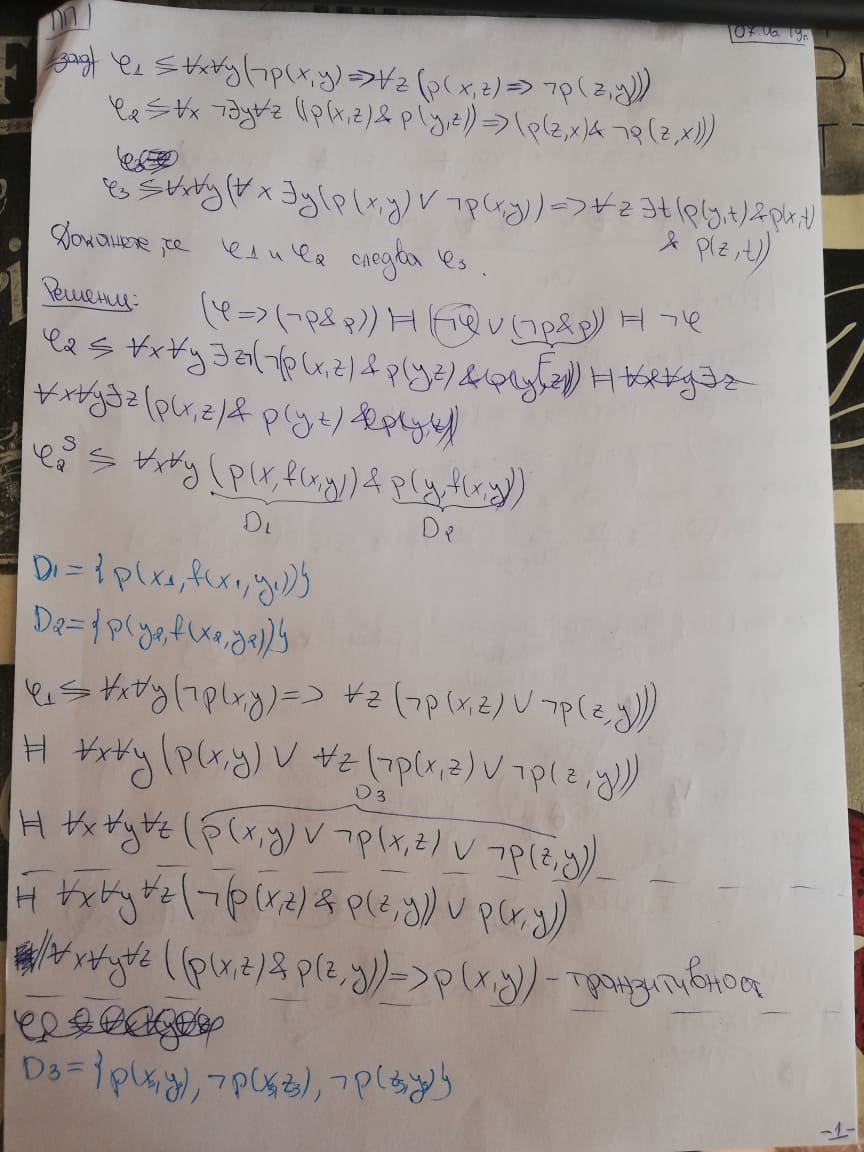 ЛП
07.06 19г.
зад φ1 ≤ ∀x∀y(¬p(x,y)=>∀z(p(x,z)=> ¬p(z,y)))
φ2 ≤ ∀x ¬∃y∀z ((p(x,z) & p(y,z))=>(p(z,x)& ¬p(z,x)))
φ3 ≤ ∀x∀y(∀x ∃y(p(x,y) ∨ ¬p(x,y))=>∀z ∃t(p(y,t)&p(x,t)
& p(z,t))
Докажете, че φ1 и φ2 следва φ3.
Решение: (φ=>(¬p&p)) ⊨ (¬φ ∨ (¬p&p)) ⊨ ¬φ
φ2 ≤ ∀x∀y ∃z¬(¬(p(x,z) & p(y,z)
∀x∀y∃z(p(x,z) & p(y,z)
φ2^S ≤ ∀x∀y (p(x,f(x,y)) & p(y,f(x,y)))
D1 D2
D1 = {p(x1,f(x1,y1))}
D2 = {p(y2,f(x2,y2))}
φ1 ≤ ∀x∀y(¬p(x,y)=> ∀z (¬p(x,z) ∨ ¬p(z,y)))
H ∀x∀y(p(x,y) ∨ ∀z(¬p(x,z) ∨ ¬p(z,y)))
D3
H ∀x∀y∀z (p(x,y) ∨ ¬p(x,z) ∨ ¬p(z,y))
H ∀x∀y∀z(¬(p(x,z) & p(z,y)) ∨ p(x,y))
∀x∀y∀z ((p(x,z) & p(z,y))=>p(x,y)) - транзитивност
D3 = {p(x3,y3), ¬p(x3,z3), ¬p(z3,y3)}
-1-